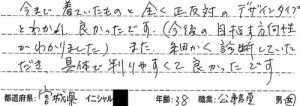 今まで着ていたものと全く正反対のデザインタイプ
とわかり良かったです。(今後の目指す方向性
がわかりました) また、細かく診断していた
だき、具体的で判りやすくて良かったです
都道府県: 宮城県 イニシャル 年齢: 38 職業: 公務員 男